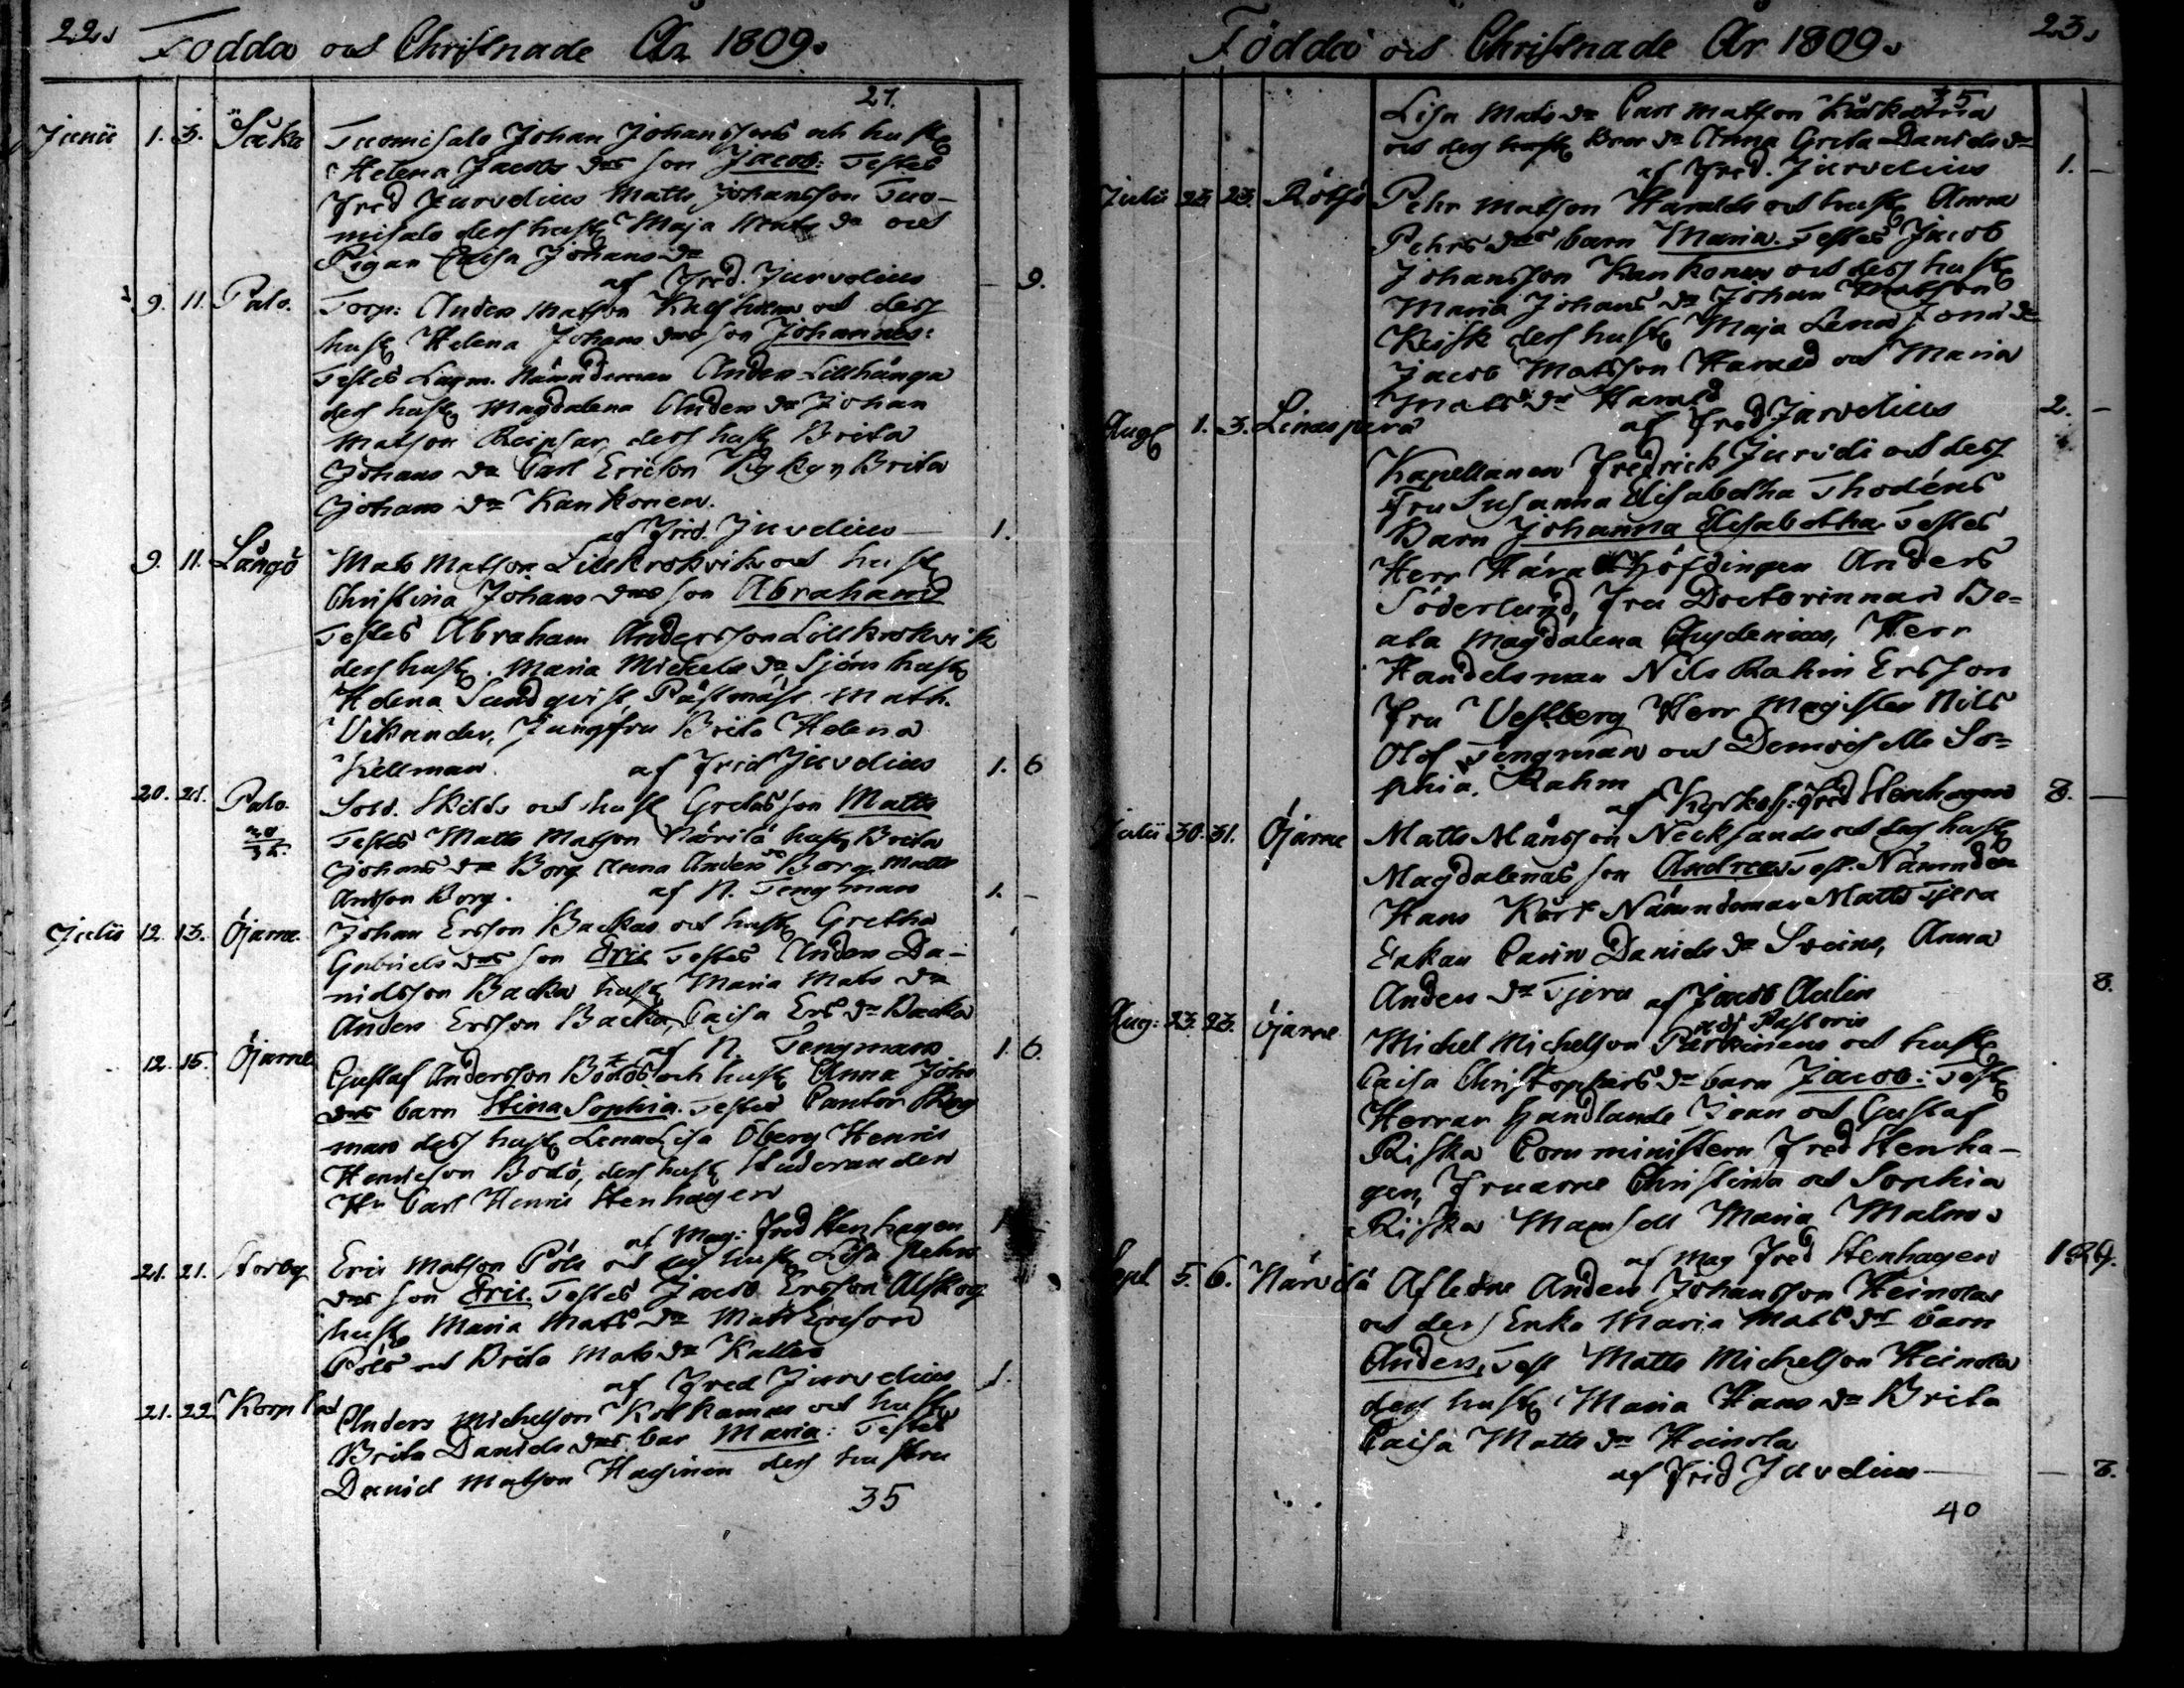 22.
Födda och Christnade År 1809.
27.
Junii 1. 3. Såka Tuomisalo Johan Johanssons och hust
Helena Jacobs drs son Jacob: Testes
Fred Jurvelius Matts Johansson Tuo-
misalo dess hust Maja Mats dr och
Pigan Johans dr
af Fred. Jurvelius 9.
9. 11. Palo. Torp: Anders Matsson och dess
hust Helena Johans drs son Johannes:
Testes Nämndeman Anders Lillhånga
dess hust Magdalena Anders dr Johan
Matson dess hust Brita
Johans dr Carl Ericson Brita
Johans dr Kankonen.
af Frid. Juvelius 1.
9. 11. Långö Mats Matson Lillkrokvik och hust
Christina Johans drs son Abraham
Testes Abraham Andersson Lillkrokvik
dess hust. Maria Mickels dr Sjöm hust
Helena Sundqvist, Påstmäst Math.
Vikander, Jungfru Brita Helena
Kellman. af Frid Juvelius 1. 6
20. 21. Palo Sold. Skilds och hust Gretas son Matts
Testes Matts Matson hust Brita
Johans dr Borg Anna Anders dr Borg Matts
Andson Borg. af N. Tengman 1. -
Julii 12. 13. Öjarne. Johan Ersson Backas och hust Gretha
Gabriels drs son Eric Testes Anders Da-
nielsson Backa hust Maria Mats dr
Anders Ersson Backa, Caisa Ers dr Backa
af N. Tengman 1. 6.
12. 15. Öjarne Gustaf Andersson Bodös och hust Anna Johs
drs barn Stina Sophia. Testes Cantor Skog
man dess hust Lena Lisa Öberg Henric
Henricson Bodö, dess hust Studeranden
Hr Carl Henric Stenhagen
af Mag: Fred Stenhagen
21. 21. Storby Eric Matson Póls och dess hust Lisa Pehrs
drs son Eric. Testes Jacob Ersson Alskog
hust Maria Mats dr Mats Ericson
Póls och Brita Mats dr
af Fred Jurvelius 1.
21. 22. Anders Michelson och hust
Brita Daniels drs bar Maria: Testes
Daniel Matson dess hustru
35
23.
Födda och Christnade År 1809.
35
Lisa Mats dr Carl Matson
och dess Bror dr Anna Greta Daniels dr
af Fred. Jurvelius 1. -
Julii 23. 23. Rötsö Pehr Matson Haralds och hust Anna
Pehrs drs barn Maria. Testes Jacob
Johansson Kankonen och dess hust
Maria Johans dr Johan Matson
Keisk dess hust Maja Lena Jona dr
Jacob Matsson Harald och Maria
Mats dr Harald
af Fred Jurvelius 2. -
Aug 1. 3. Linäsperä
Kapellanen Fredrick Jurvelii och dess
Fru Susanna Elisabetha Thodéns
Barn Johanna Elisabetha Testes
Herr Häradshöfdingen Anders
Söderlund, Fru Doctorinnan Be=
ata Magdalena Chydenius, Herr
Handelsman Nils Rahm Ersson
Fru Vestberg Herr Magister Nils
Olof Tengman och Demoiselle So=
phia Rahm
af Kyrkoh: Frid Stenhagen 8. -
Julii 30. 31. Öjarne Matts Månsson Necksands och dess hust
Magdalenas son Andreas Test. Nämndem
Hans Kärt Nämndeman Matts Tjera
Enkan Carin Daniels dr Sveins, Anna
Anders dr Tjera af Jacob Aulin 8.
adj Pastoris
Aug: 23. 23. Öjarne Michel Michelson och hust
Caisa Christophers dr barn Jacob: Test
Herrar Handlande Joan och Gustaf
Riska Comministern Fred Stenha-
gen, Fruarne Christina och Sophia
Riska Mamsell Maria Malm.
af Mag Fred Stenhagen
Sept 5. 6. Närvilä Afledne Anders Johansson Heinolas
och dess Enka Maria Mats drs barn
Anders, Test Matts Michelson Heinola
dess hust Maria Hans dr Brita
Caisa Matts dr Heinola
af Frid Juvelius 8.
40